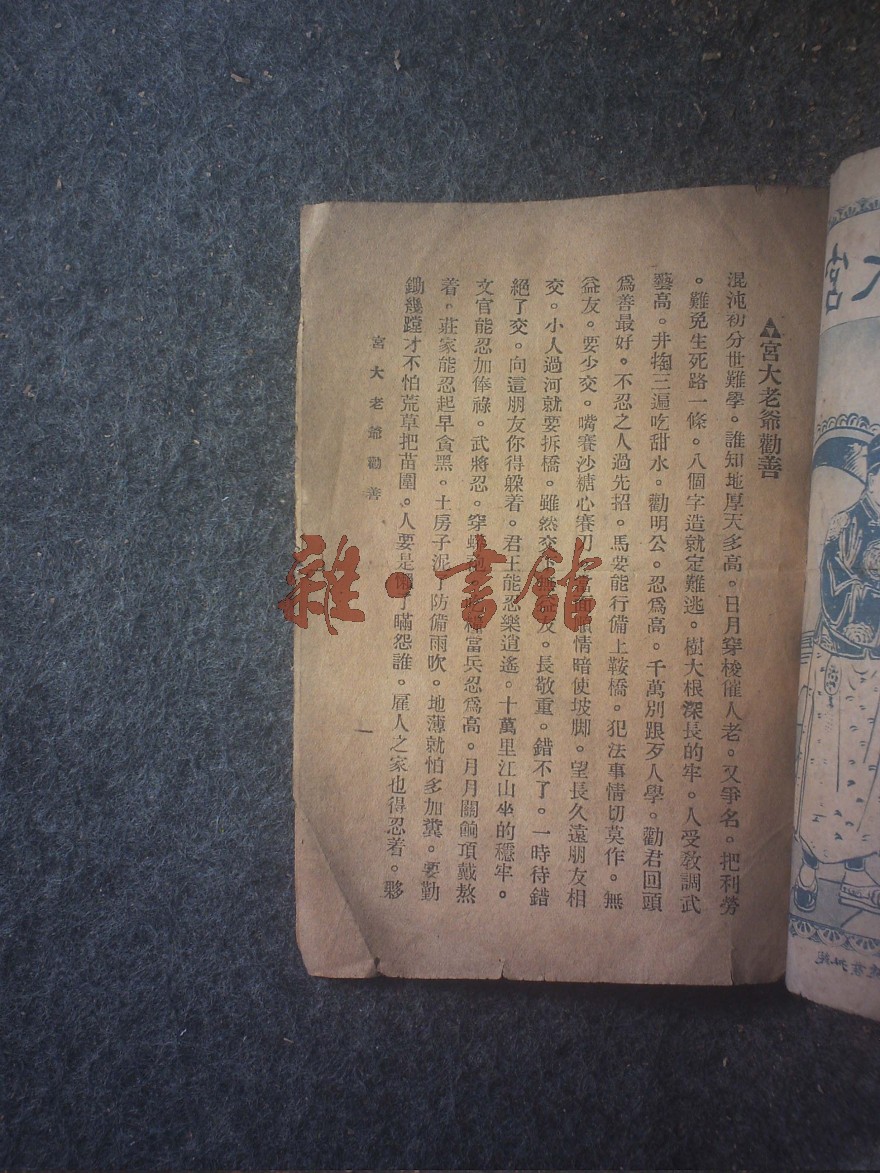 ▲宮大老爺勸善
混沌初分世難學。誰知地厚天多高。日月穿梭催人老。又爭名。把利勞
。難免生死路一條。八個字造就定難逃。樹大根深長的牢。人受教調武
藝高。井掏三遍吃甜水。勸明公。忍爲高。千萬別跟歹人學。勸君回頭
爲善最好。不忍之人過先招。馬要能行備上鞍橋。犯法事情切莫作。無
益友。要少交。嘴賽沙糖心賽刀。當面順情暗使坡脚。望長久遠朋友相
交。小人過河就要拆橋。雖然交下無益友。長敬重。錯不了。一時待錯
絕了交。向這朋友你得躲着。君王能忍樂逍遙。十萬里江山坐的穩牢。
文官能忍加俸祿。武將忍。穿蟒袍。當兵忍爲高。月月關餉項戴熬
着。莊家能忍起早貪黑。土房子泥了防備雨吹。地薄就怕多加糞。要勤
鋤幾蹚才不怕荒草把苗圍。人要是懶了瞞怨誰。雇人之家也得忍着。夥
宮大老爺勸善
一
雜·書館
宮大